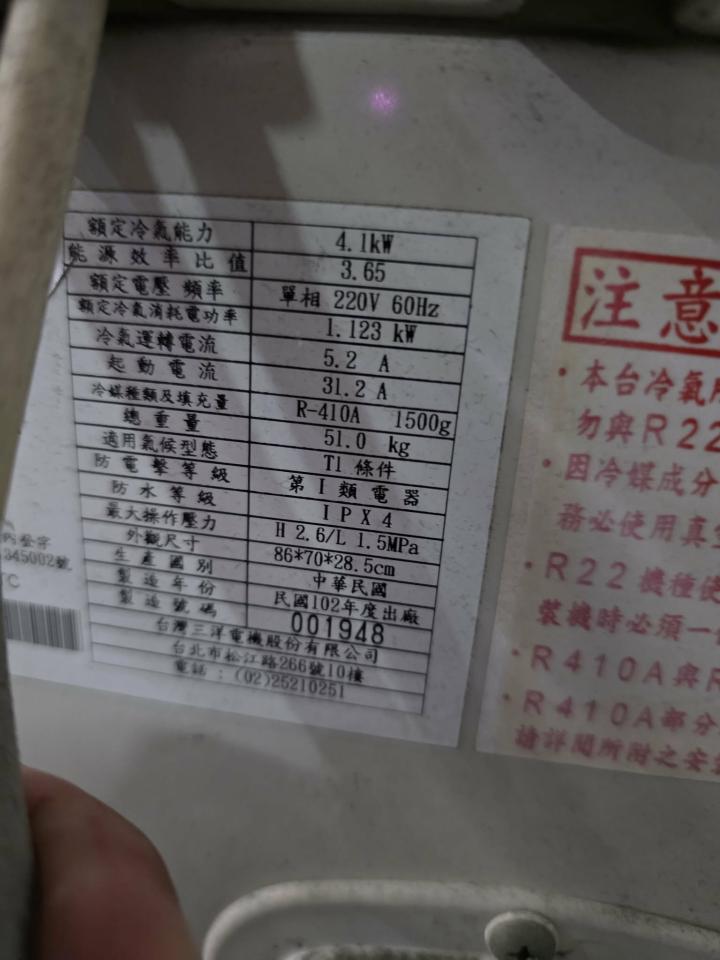 額定冷氣能力 4.1kW
能源效率比值 3.65
額定電壓 頻率 單相 220V 60Hz
額定冷氣消耗電功率 1.123 kW
冷氣運轉電流 5.2 A
起動電流 31.2 A
冷媒種類及填充量 R-410A 1500g
總重量 51.0 kg
適用氣候型態 T1 條件
防電擊等級 第I類電器
防水等級 IPX4
最大操作壓力 H 2.6/L 1.5MPa
外觀尺寸 86*70*28.5cm
生產國別 中華民國
製造年份 民國102年度出廠
製造號碼 001948
台灣三洋電機股份有限公司
台北市松江路266號10樓
電話：(02)25210251
內登字
345002號
注意
• 本台冷氣
勿與R22
• 因冷媒成分
務必使用真
• R22機種使
裝機時必須一
• R410A與R
• R410A部分
請詳閱所附之安